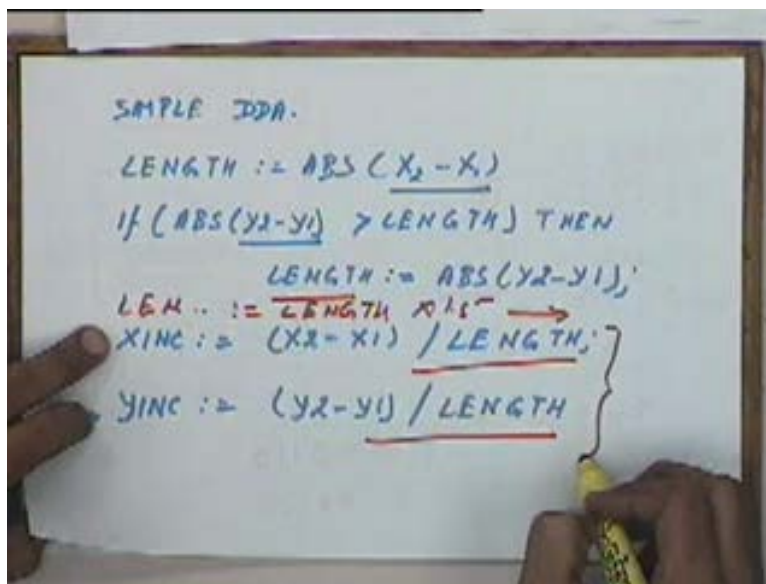 SAMPLE DDA.
LENGTH := ABS (X2 - X1)
If (ABS(Y2-Y1) > LENGTH) THEN
LENGTH := ABS (Y2-Y1);
LEN.. := LENGTH
XINC := (X2-X1) / LENGTH;
YINC := (Y2-Y1) / LENGTH